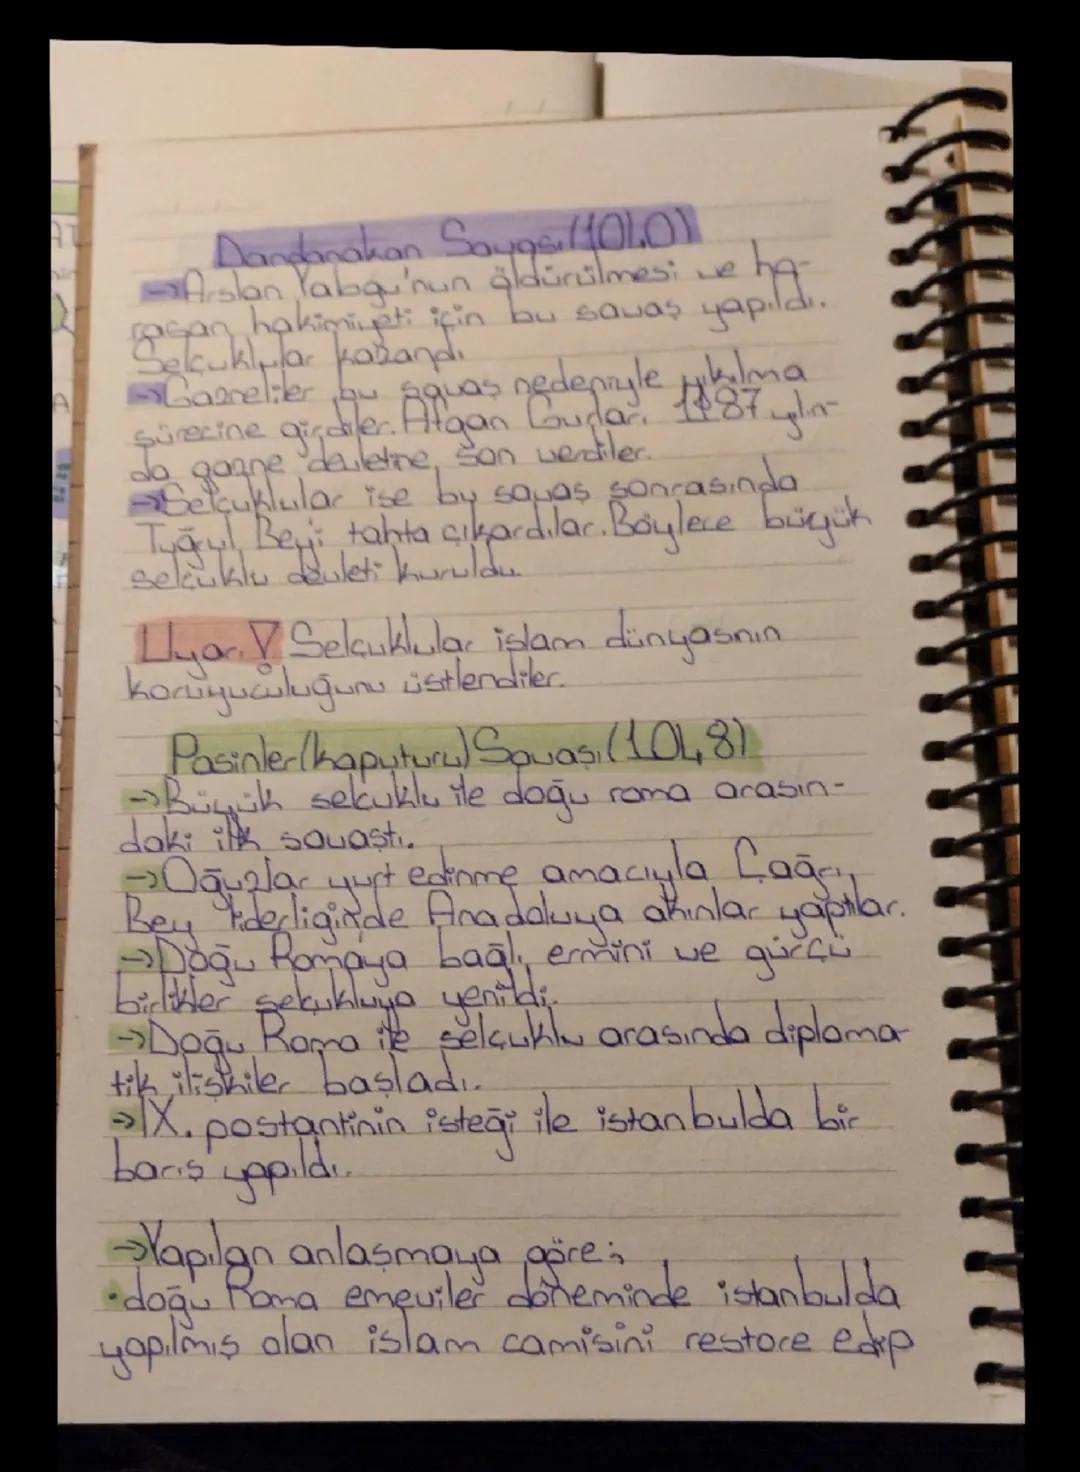 Dandanakan Savaşı (1040)
→Arslan Yabgu'nun öldürülmesi ve ho-
rasan hakimiyeti için bu savaş yapıldı.
Selçuklular kazandı
→Gazneliler bu savaş nedeniyle yıkılma
sürecine girdiler. Afgan Gurlar. 1187 yılın-
da gazne devletine son verdiler.
→Selçuklular ise bu savaş sonrasında
Tuğrul Beyi tahta çıkardılar. Böylece büyük
selçuklu devleti kuruldu.
Uyarı! Selçuklular islam dünyasnın
koruyuculuğunu üstlendiler.
Pasinler (kaputuru) Savaşı (1048)
→Büyük selçuklu ile doğu roma arasın-
daki ilk savaştı.
→Oğuzlar yurt edinme amacıyla Çağrı
Bey liderliğinde Anadoluya akınlar yaptılar.
→Doğu Romaya bağlı ermini ve gürcü
birlikler selçukluya yenildi.
→Doğu Roma ile selçuklu arasında diploma
tik ilişkiler başladı.
→IX. postantinin isteği ile istanbulda bir
barış yapıldı.
→Yapılan anlaşmaya göre;
•doğu Roma emeviler döneminde istanbulda
yapılmış olan islam camisini restore edip